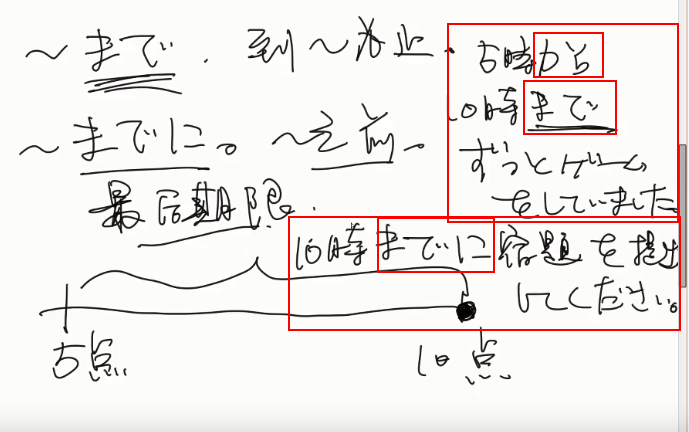 ～まで. 到～为止.
～までに。～之前。
最后期限.
5時から
10時まで
ずっとゲーム
をしていました
10時までに宿題を提出
してください。
5点
10点